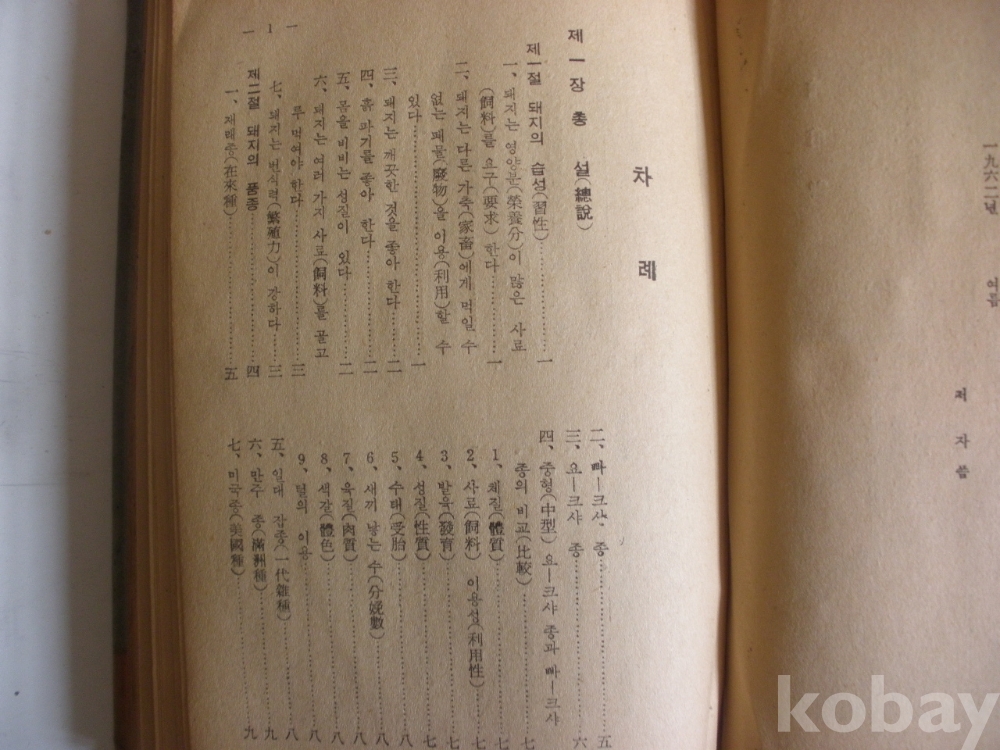 一九六二년 여름
저 자 씀
차 례
제 一 장 총 설(總說)
제一절 돼지의 습성(習性)……一
一、돼지는 영양분(榮養分)이 많은 사료
(飼料)를 요구(要求) 한다……一
二、돼지는 다른 가축(家畜)에게 먹일 수
없는 폐물(廢物)을 이용(利用)할 수
있다……一
三、돼지는 깨끗한 것을 좋아 한다……二
四、흙 파기를 좋아 한다……二
五、몸을 비비는 성질이 있다……二
六、돼지는 여러 가지 사료(飼料)를 골고
루 먹여야 한다……三
七、돼지는 번식력(繁殖力)이 강하다……三
제二절 돼지의 품종……四
一、재래종(在來種)……五
— 1 —
二、빠―크샤 종……五
三、요―크샤 종……六
四、중형(中型) 요―크샤 종과 빠―크샤
종의 비교(比較)……七
1、체질(體質)……七
2、사료(飼料) 이용성(利用性)……七
3、발육(發育)……七
4、성질(性質)……七
5、수태(受胎)……八
6、새끼 낳는 수(分娩數)……八
7、육질(肉質)……八
8、색갈(體色)……八
9、털의 이용……八
五、일대 잡종(一代雜種)……九
六、만주 종(滿洲種)……九
七、미국종(美國種)……九
kobay